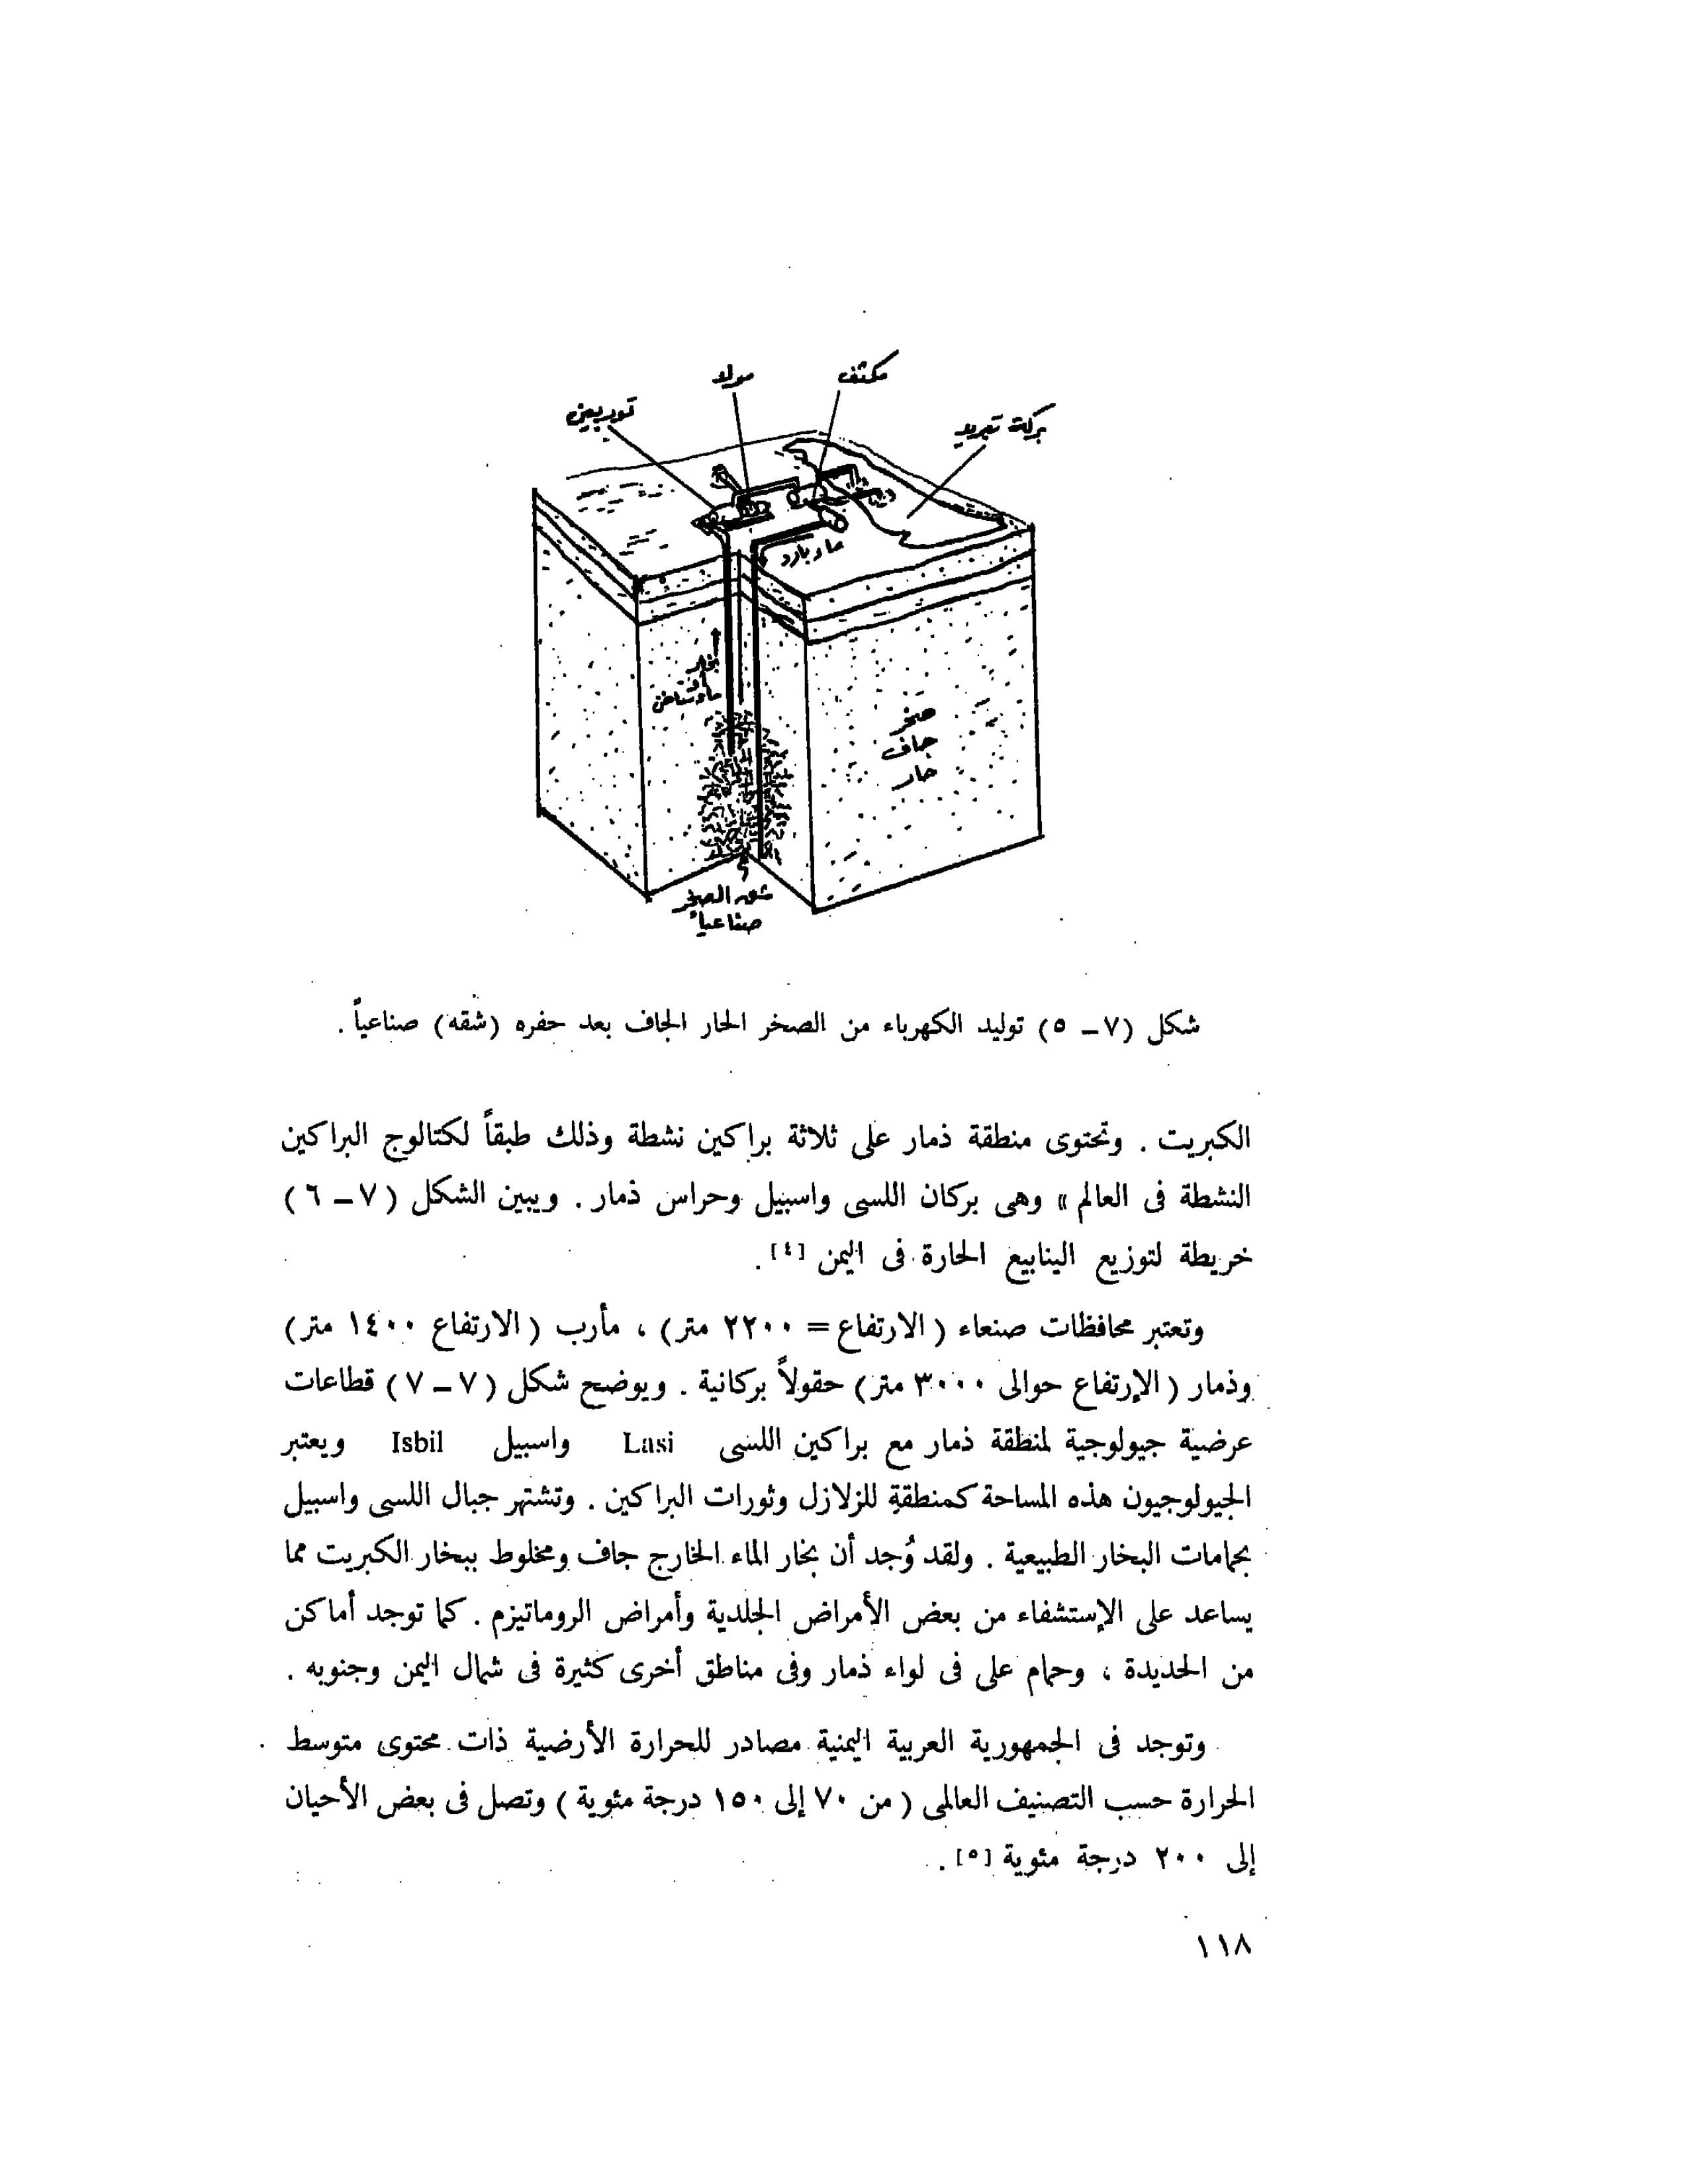 مكثف
مولد
توربين
بركة تبريد
ماء بارد
بخار
أو
ماء ساخن
صخر
جاف
حار
شق الصخر
صناعياً
شكل (٧ – ٥) توليد الكهرباء من الصخر الحار الجاف بعد حفره (شقه) صناعياً .
الكبريت . وتحتوى منطقة ذمار على ثلاثة براكين نشطة وذلك طبقاً لكتالوج البراكين
النشطة فى العالم » وهى بركان اللسى واسبيل وحراس ذمار . ويبين الشكل ( ٧ – ٦ )
خريطة لتوزيع الينابيع الحارة فى اليمن [٤] .
وتعتبر محافظات صنعاء ( الارتفاع = ٢٢٠٠ متر) ، مأرب ( الارتفاع ١٤٠٠ متر)
وذمار ( الإرتفاع حوالى ٣٠٠٠ متر) حقولاً بركانية . ويوضح شكل ( ٧ – ٧ ) قطاعات
عرضية جيولوجية لمنطقة ذمار مع براكين اللسى Lasi واسبيل Isbil ويعتبر
الجيولوجيون هذه المساحة كمنطقة للزلازل وثورات البراكين . وتشتهر جبال اللسى واسبيل
بحمامات البخار الطبيعية . ولقد وُجد أن بخار الماء الخارج جاف ومخلوط ببخار الكبريت مما
يساعد على الإستشفاء من بعض الأمراض الجلدية وأمراض الروماتيزم . كما توجد أماكن
من الحديدة ، وحمام على فى لواء ذمار وفى مناطق أخرى كثيرة فى شمال اليمن وجنوبه .
وتوجد فى الجمهورية العربية اليمنية مصادر للحرارة الأرضية ذات محتوى متوسط
الحرارة حسب التصنيف العالمى ( من ٧٠ إلى ١٥٠ درجة مئوية ) وتصل فى بعض الأحيان
إلى ٢٠٠ درجة مئوية [٥] .
١١٨